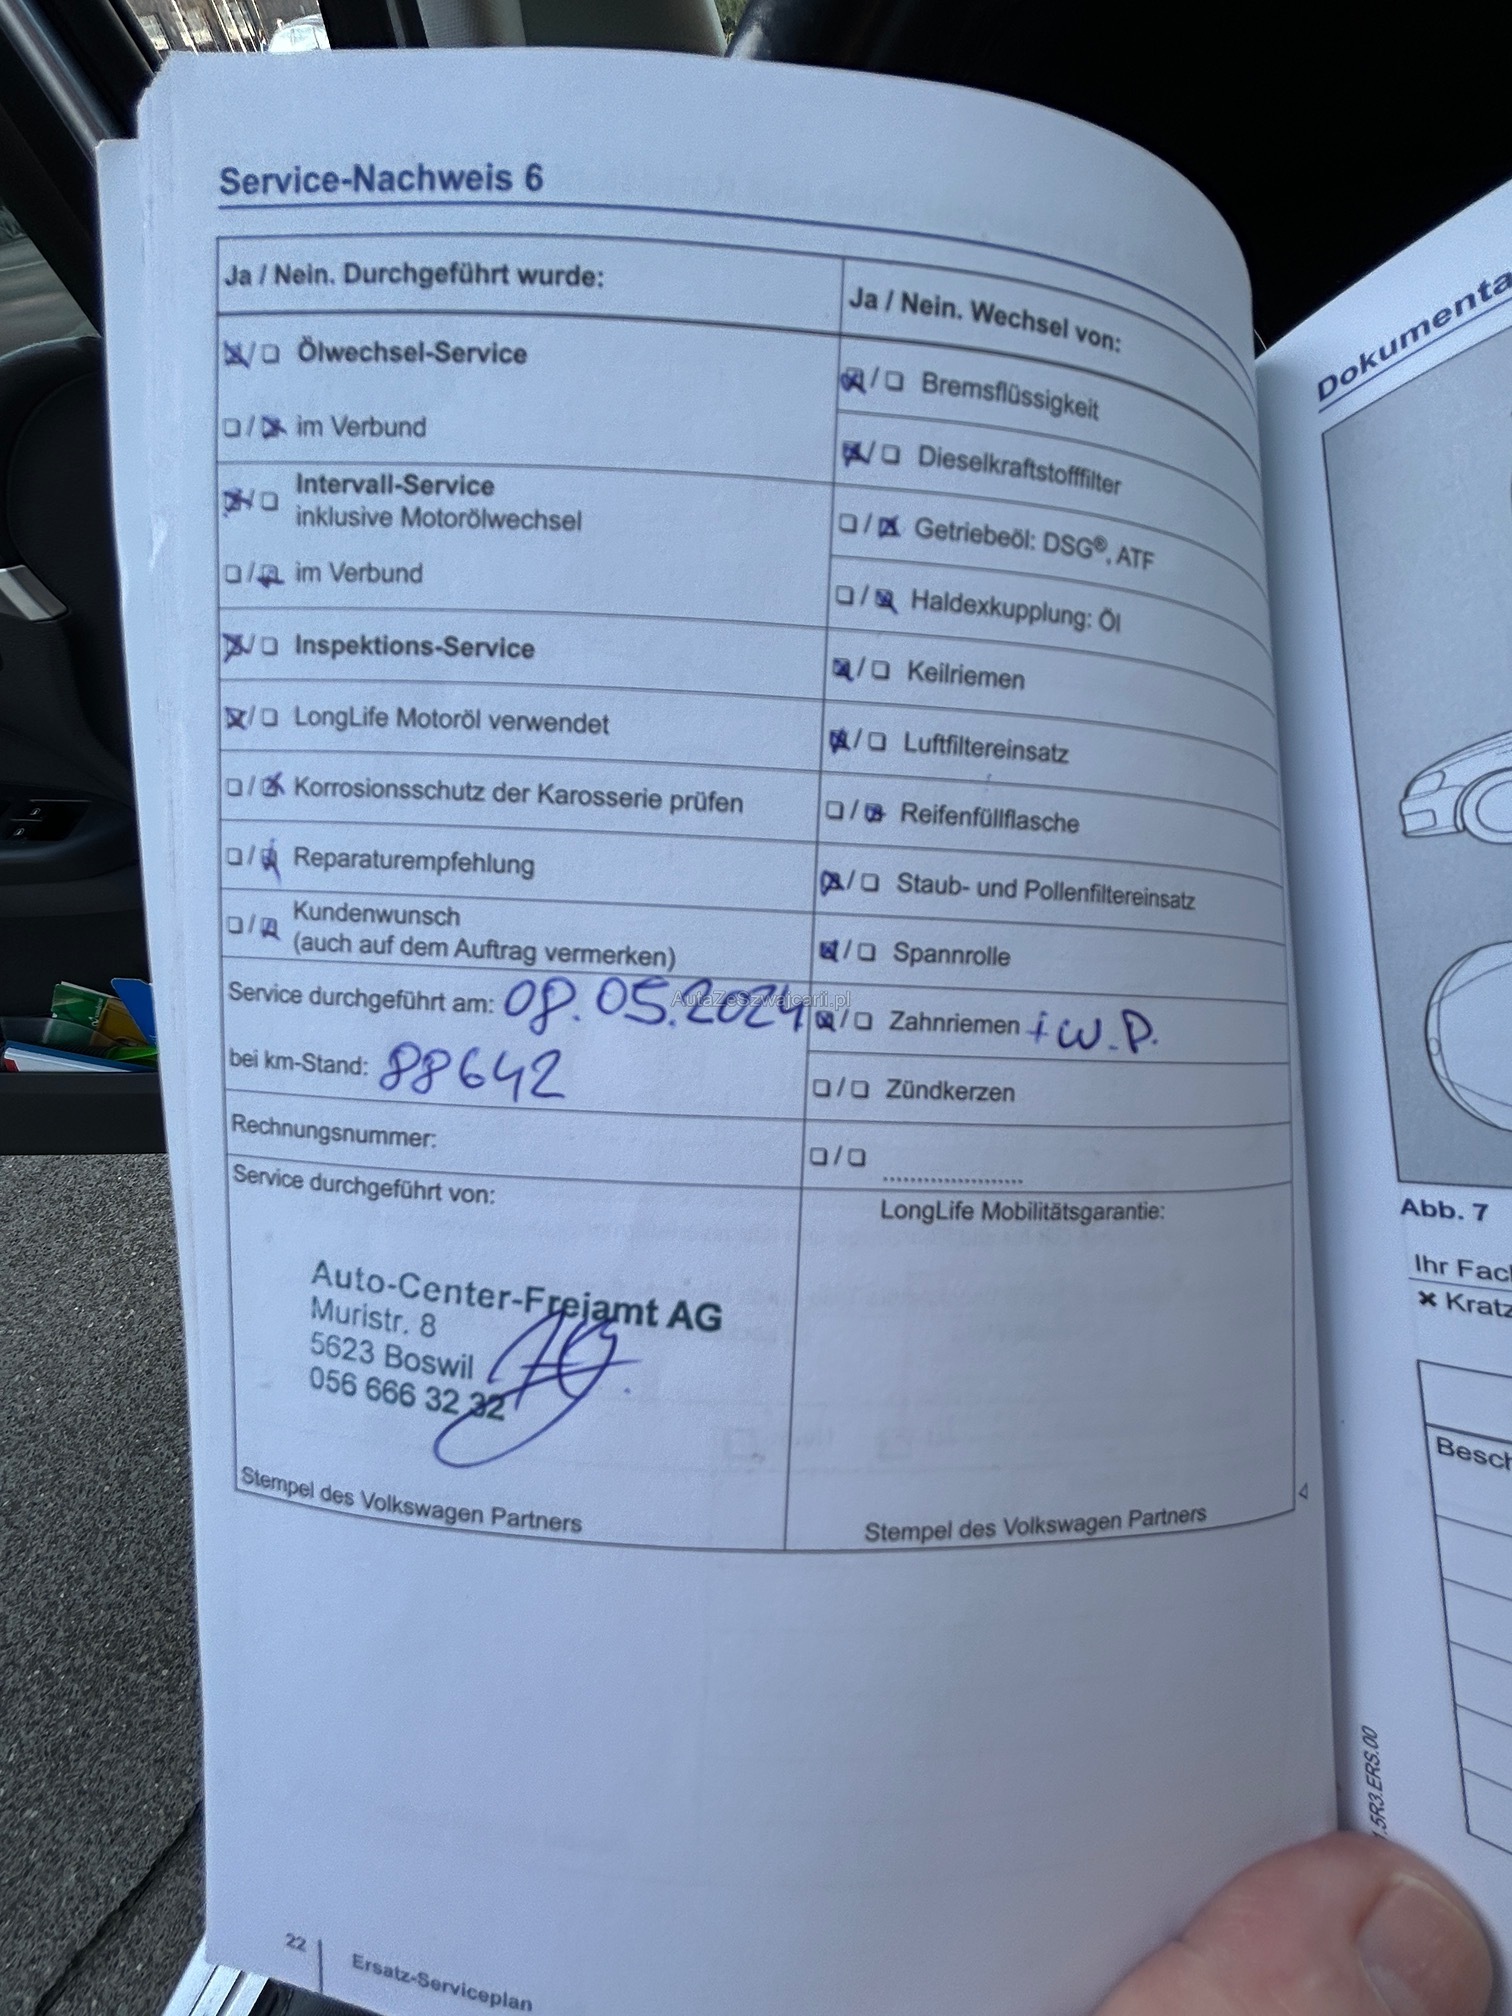 Service-Nachweis 6
Ja / Nein. Durchgeführt wurde:
☒/☐ Ölwechsel-Service
☐/☒ im Verbund
☒/☐ Intervall-Service
inklusive Motorölwechsel
☐/☒ im Verbund
☒/☐ Inspektions-Service
☒/☐ LongLife Motoröl verwendet
☐/☒ Korrosionsschutz der Karosserie prüfen
☐/☒ Reparaturempfehlung
☐/☒ Kundenwunsch
(auch auf dem Auftrag vermerken)
Service durchgeführt am: 08.05.2024
bei km-Stand: 88642
Rechnungsnummer:
Service durchgeführt von:
Auto-Center-Freiamt AG
Muristr. 8
5623 Boswil
056 666 32 32
Stempel des Volkswagen Partners
Ja / Nein. Wechsel von:
☒/☐ Bremsflüssigkeit
☒/☐ Dieselkraftstofffilter
☐/☒ Getriebeöl: DSG®, ATF
☐/☒ Haldexkupplung: Öl
☒/☐ Keilriemen
☒/☐ Luftfiltereinsatz
☐/☒ Reifenfüllflasche
☒/☐ Staub- und Pollenfiltereinsatz
☒/☐ Spannrolle
☒/☐ Zahnriemen + W.P.
☐/☐ Zündkerzen
☐/☐ ......................
LongLife Mobilitätsgarantie:
Stempel des Volkswagen Partners
AutaZeSzwajcarii.pl
22
Ersatz-Serviceplan
Dokumenta
Abb. 7
Ihr Fac
✖ Kratz
Besch
5R3.ERS.00